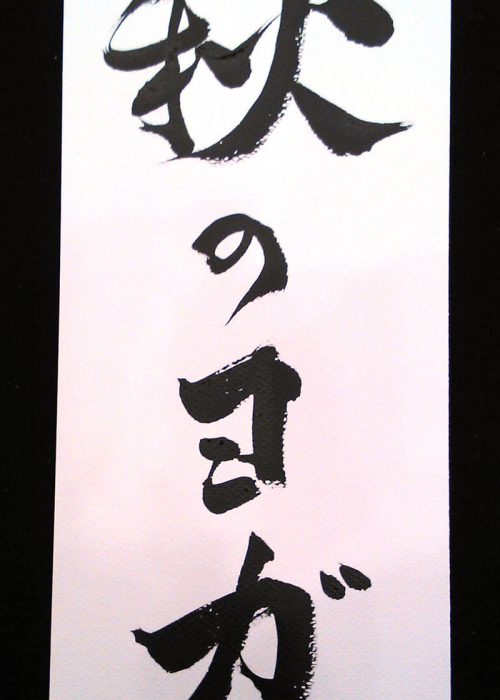 秋のヨガ